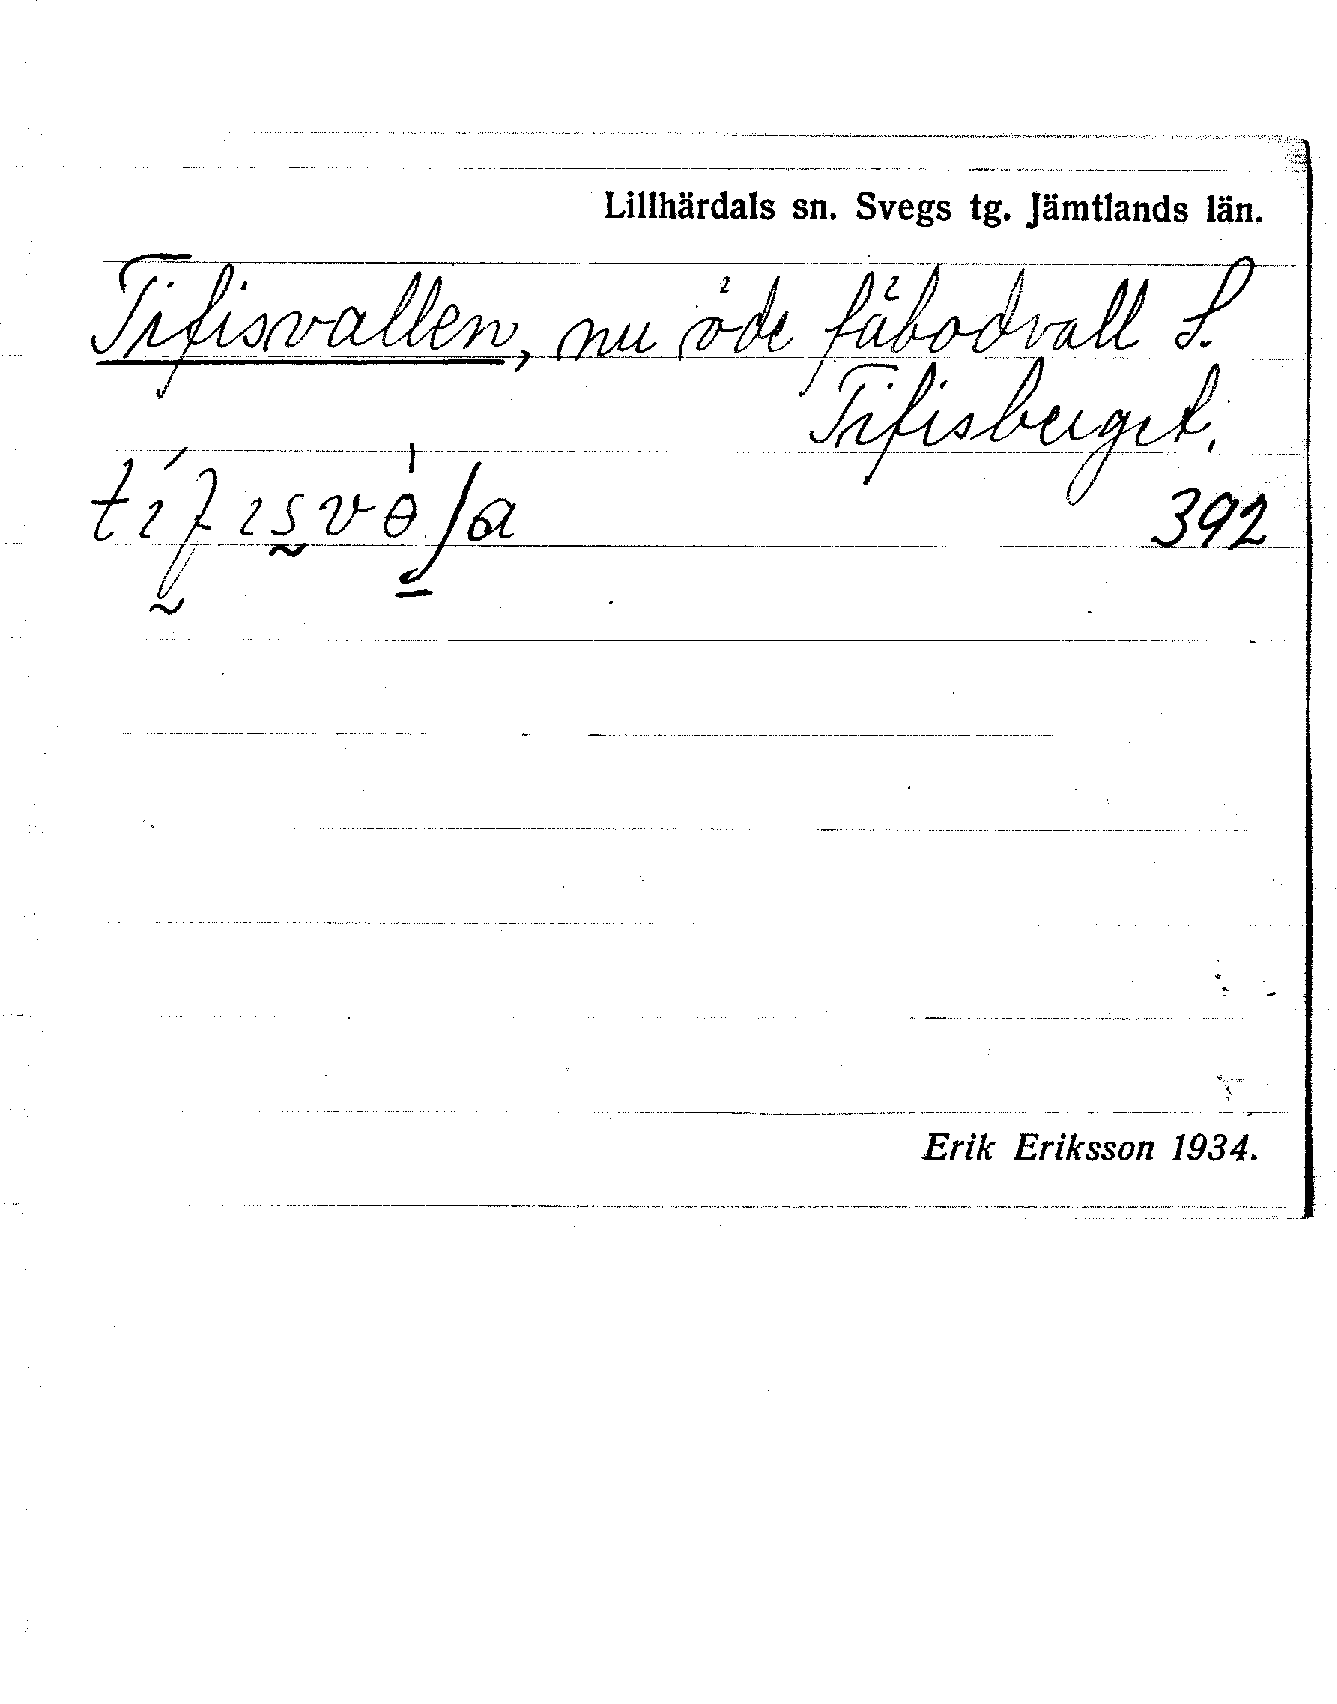 Lillhärdals sn. Svegs tg. Jämtlands län.
Tifisvallen, nu öde fäbodvall S.
Tifisberget.
392
Erik Eriksson 1934.